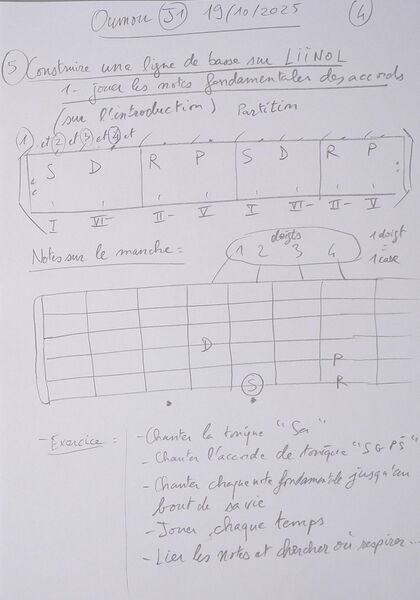 Oumou J1 19/10/2025 4
5 Construire une ligne de basse sur LIINOL
1- jouer les notes fondamentales des accords
(sur l'introduction) Partition
1 et 2 et 3 et 4 et
S D R P S D R P
I VI- II- V I VI- II- V
Notes sur le manche :
doigts
1 2 3 4
1 doigt
=
1 case
D
P
S R
- Exercice :
- Chanter la tonique "Sa"
- Chanter l'accord de tonique "S G P Ṡ"
- Chanter chaque note fondamentale jusqu'au
bout de sa vie
- Jouer chaque temps
- Lier les notes et chercher où respirer...